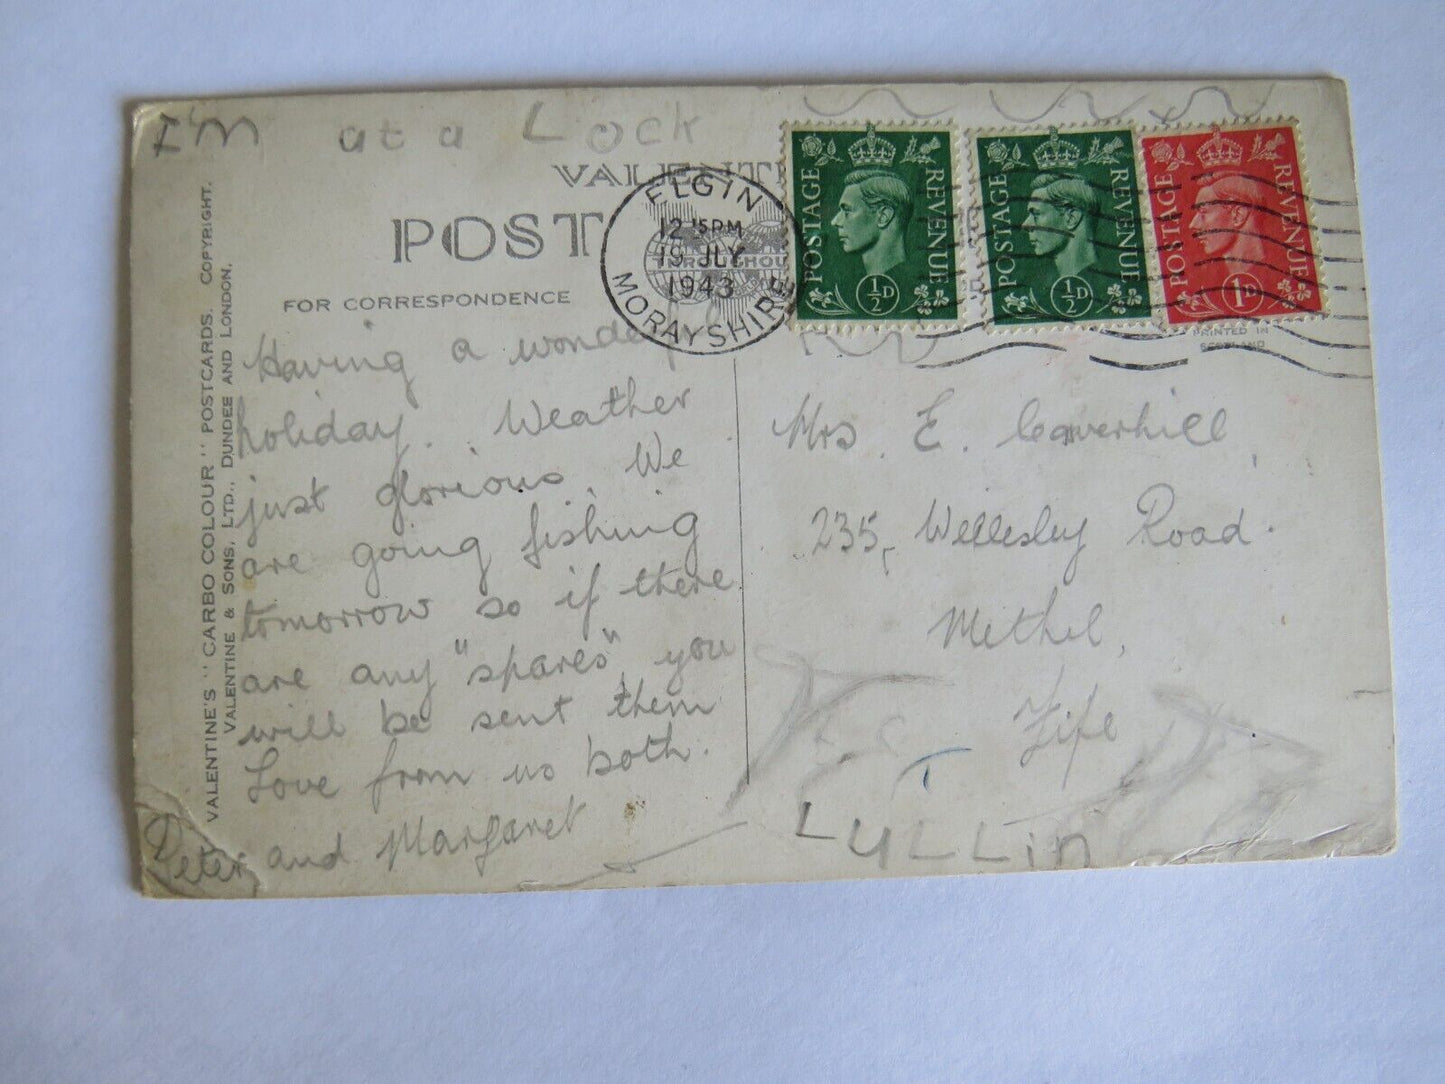 I'M at a Lock
VALENTI
POST
FOR CORRESPONDENCE
ELGIN
12 15PM
19 JLY
1943
MORAYSHIRE
POSTAGE REVENUE
½D
POSTAGE REVENUE
½D
POSTAGE REVENUE
1D
PRINTED IN
SCOTLAND
VALENTINE'S "CARBO COLOUR" POSTCARDS. COPYRIGHT.
VALENTINE & SONS, LTD., DUNDEE AND LONDON.
Having a wonderful
holiday. Weather
just glorious. We
are going fishing
tomorrow so if there
are any "spares", you
will be sent them
Love from us both.
Peter and Margaret
Mrs. E. Caverhill,
235, Wellesley Road.
Methil,
Fife
LULLin